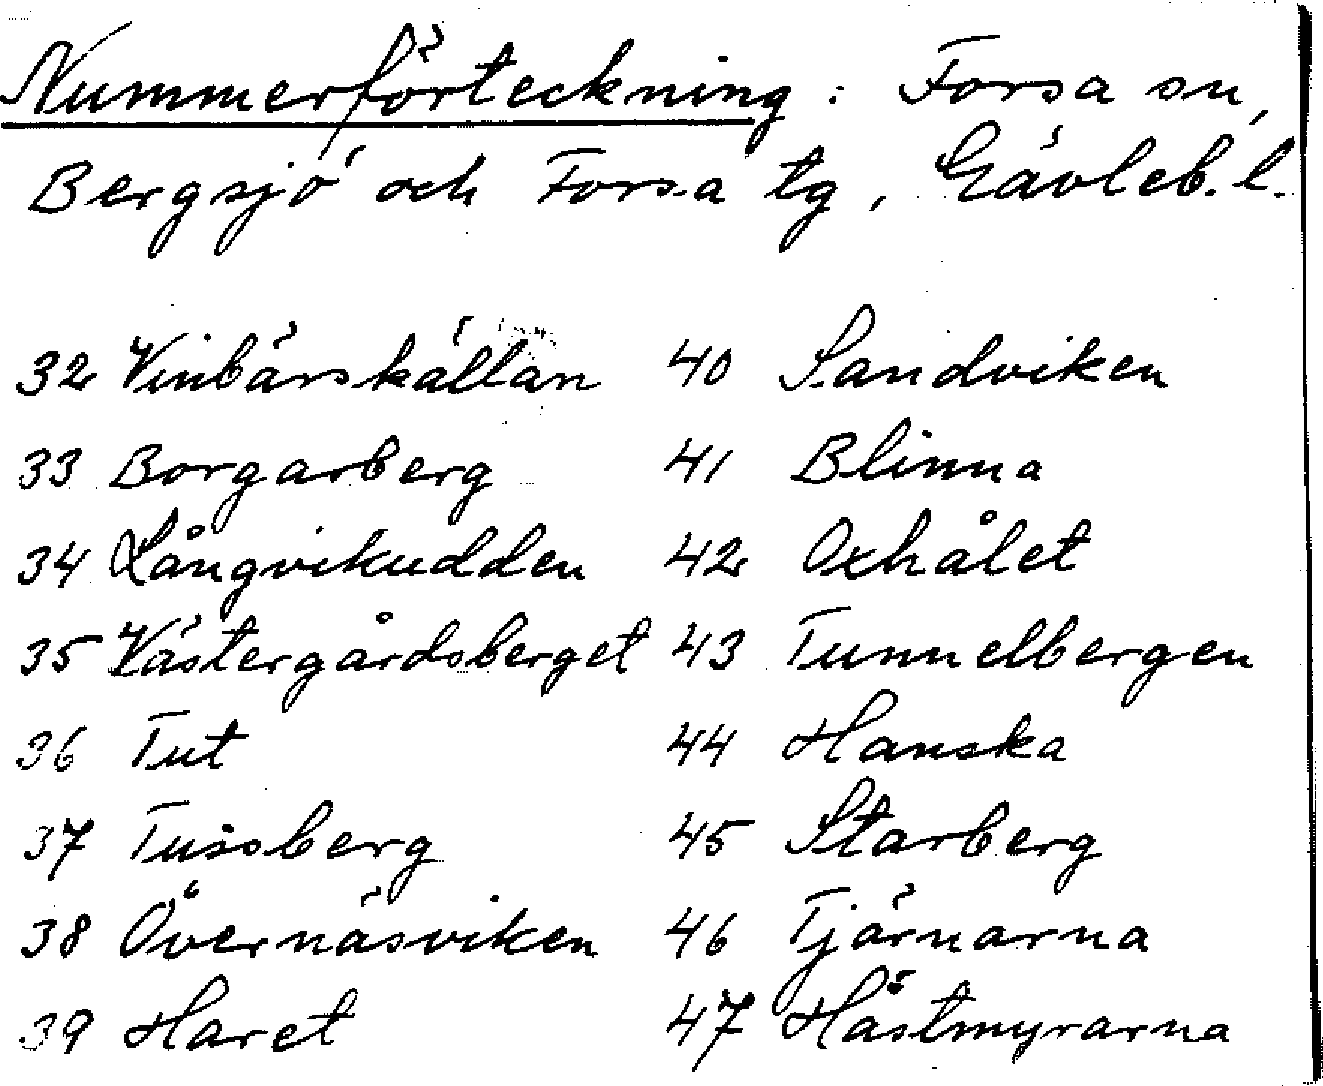 Nummerförteckning : Forsa sn,
Bergsjö och Forsa tg, Gävleb. l.
32 Vinbärskällan
33 Borgarberg
34 Långvikudden
35 Västergårdsberget
36 Tut
37 Tussberg
38 Övernäsviken
39 Haret
40 Sandviken
41 Blinna
42 Oxhålet
43 Tunnelbergen
44 Hanska
45 Starberg
46 Tjärnarna
47 Hästmyrarna